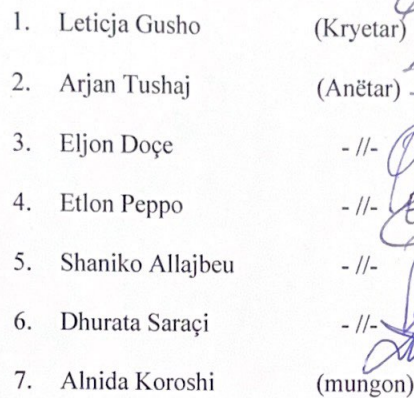 1. Leticja Gusho (Kryetar)
2. Arjan Tushaj (Anëtar)
3. Eljon Doçe - //-
4. Etlon Peppo - //-
5. Shaniko Allajbeu - //-
6. Dhurata Saraçi - //-
7. Alnida Koroshi (mungon)